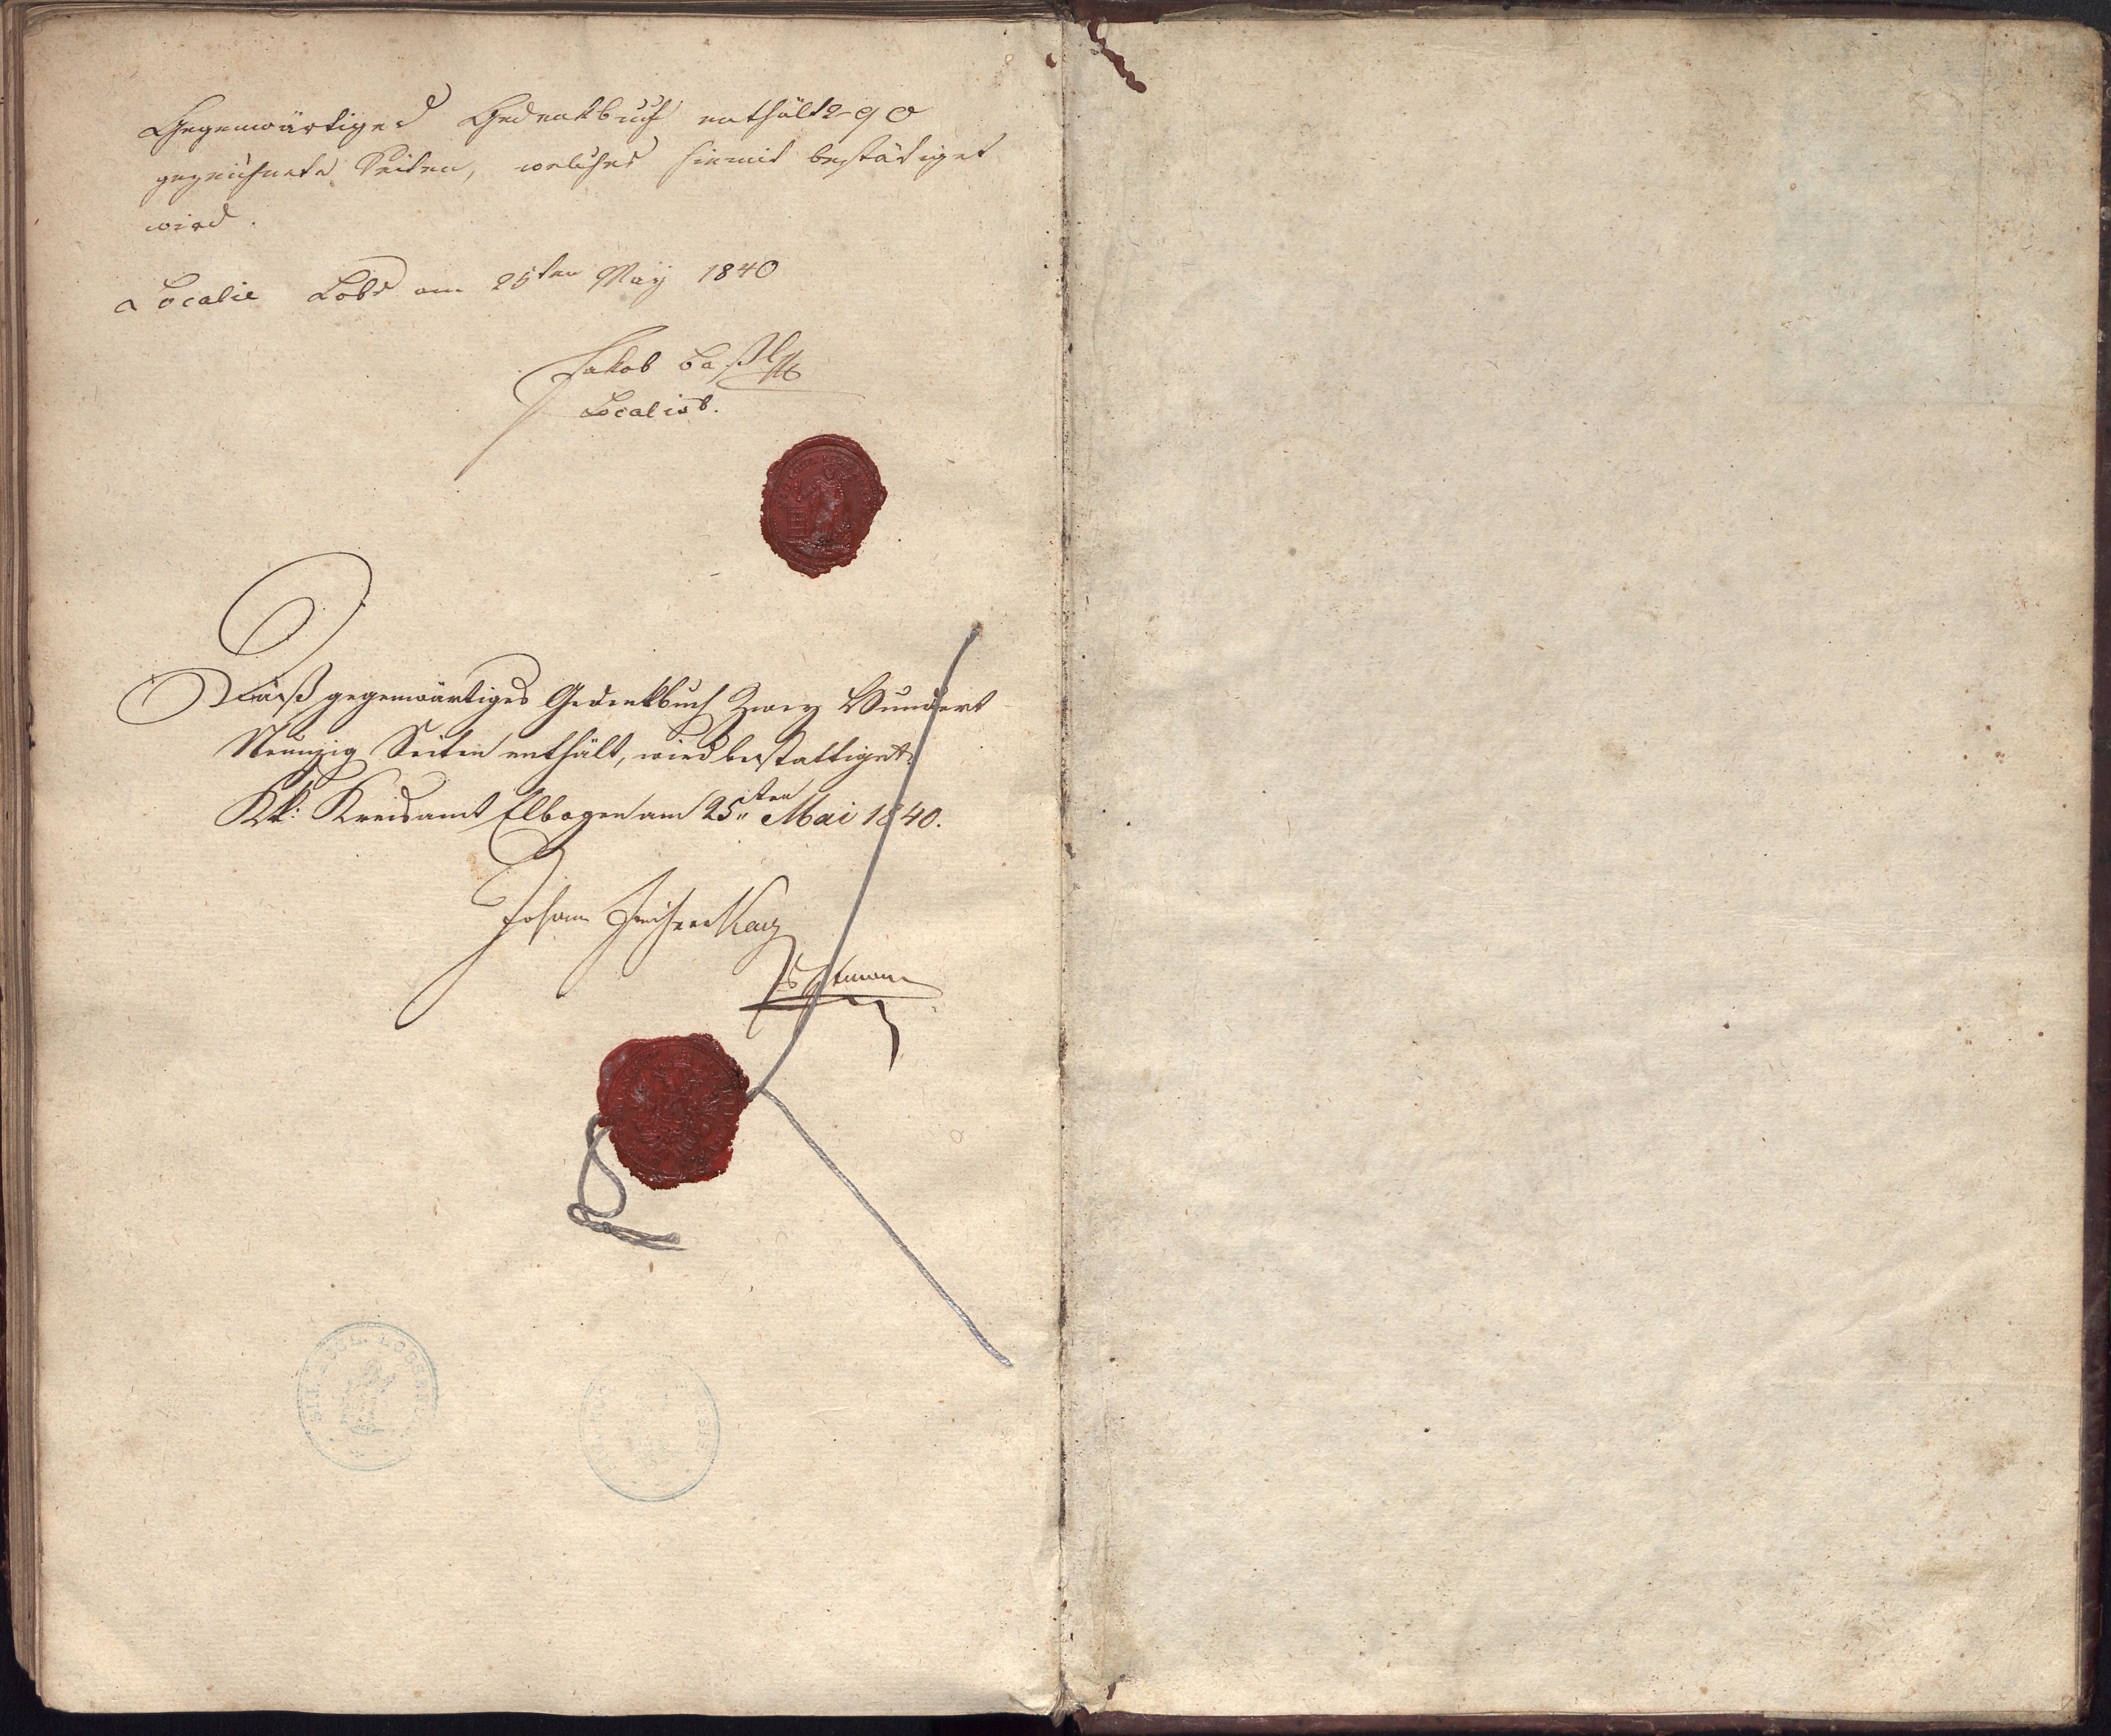 Gegenwärtiges Gedenkbuch enthält 290
gezeichnete Seiten, welches hiemit bestätiget
wird.
Localie Lobs am 25ten May 1840
Jakob
Localist.
Daß gegenwärtiges Gedenkbuch Zwey Hundert
Neunzig Seiten enthält, wird bestättiget.
KK: Kreisamt Elbogen am 25ten Mai 1840.
Johann
SIG. LOBSENS